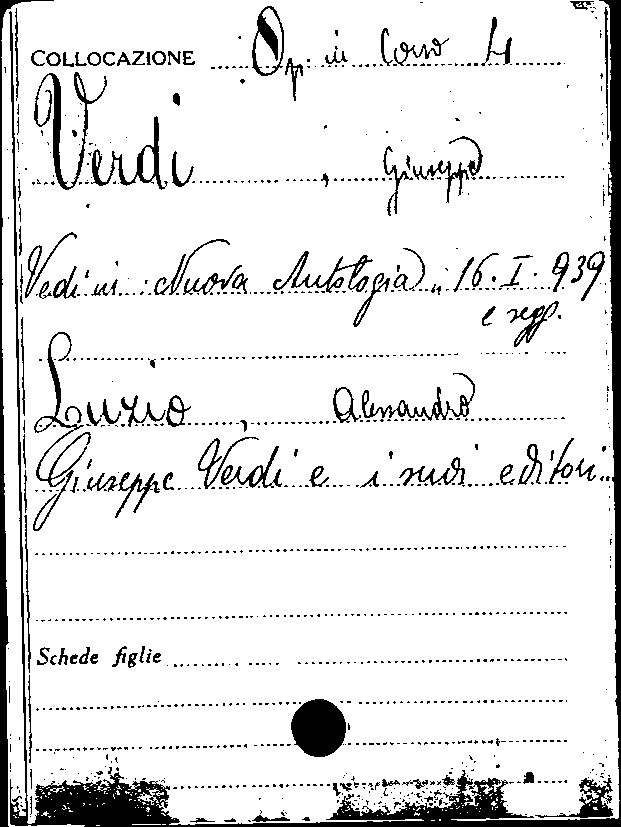 COLLOCAZIONE Op. in Corso 4
Verdi, Giuseppe
Vedi in: Nuova Antologia, 16. I. 939
e segg.
Luzio, Alessandro
Giuseppe Verdi e i suoi editori...
Schede figlie